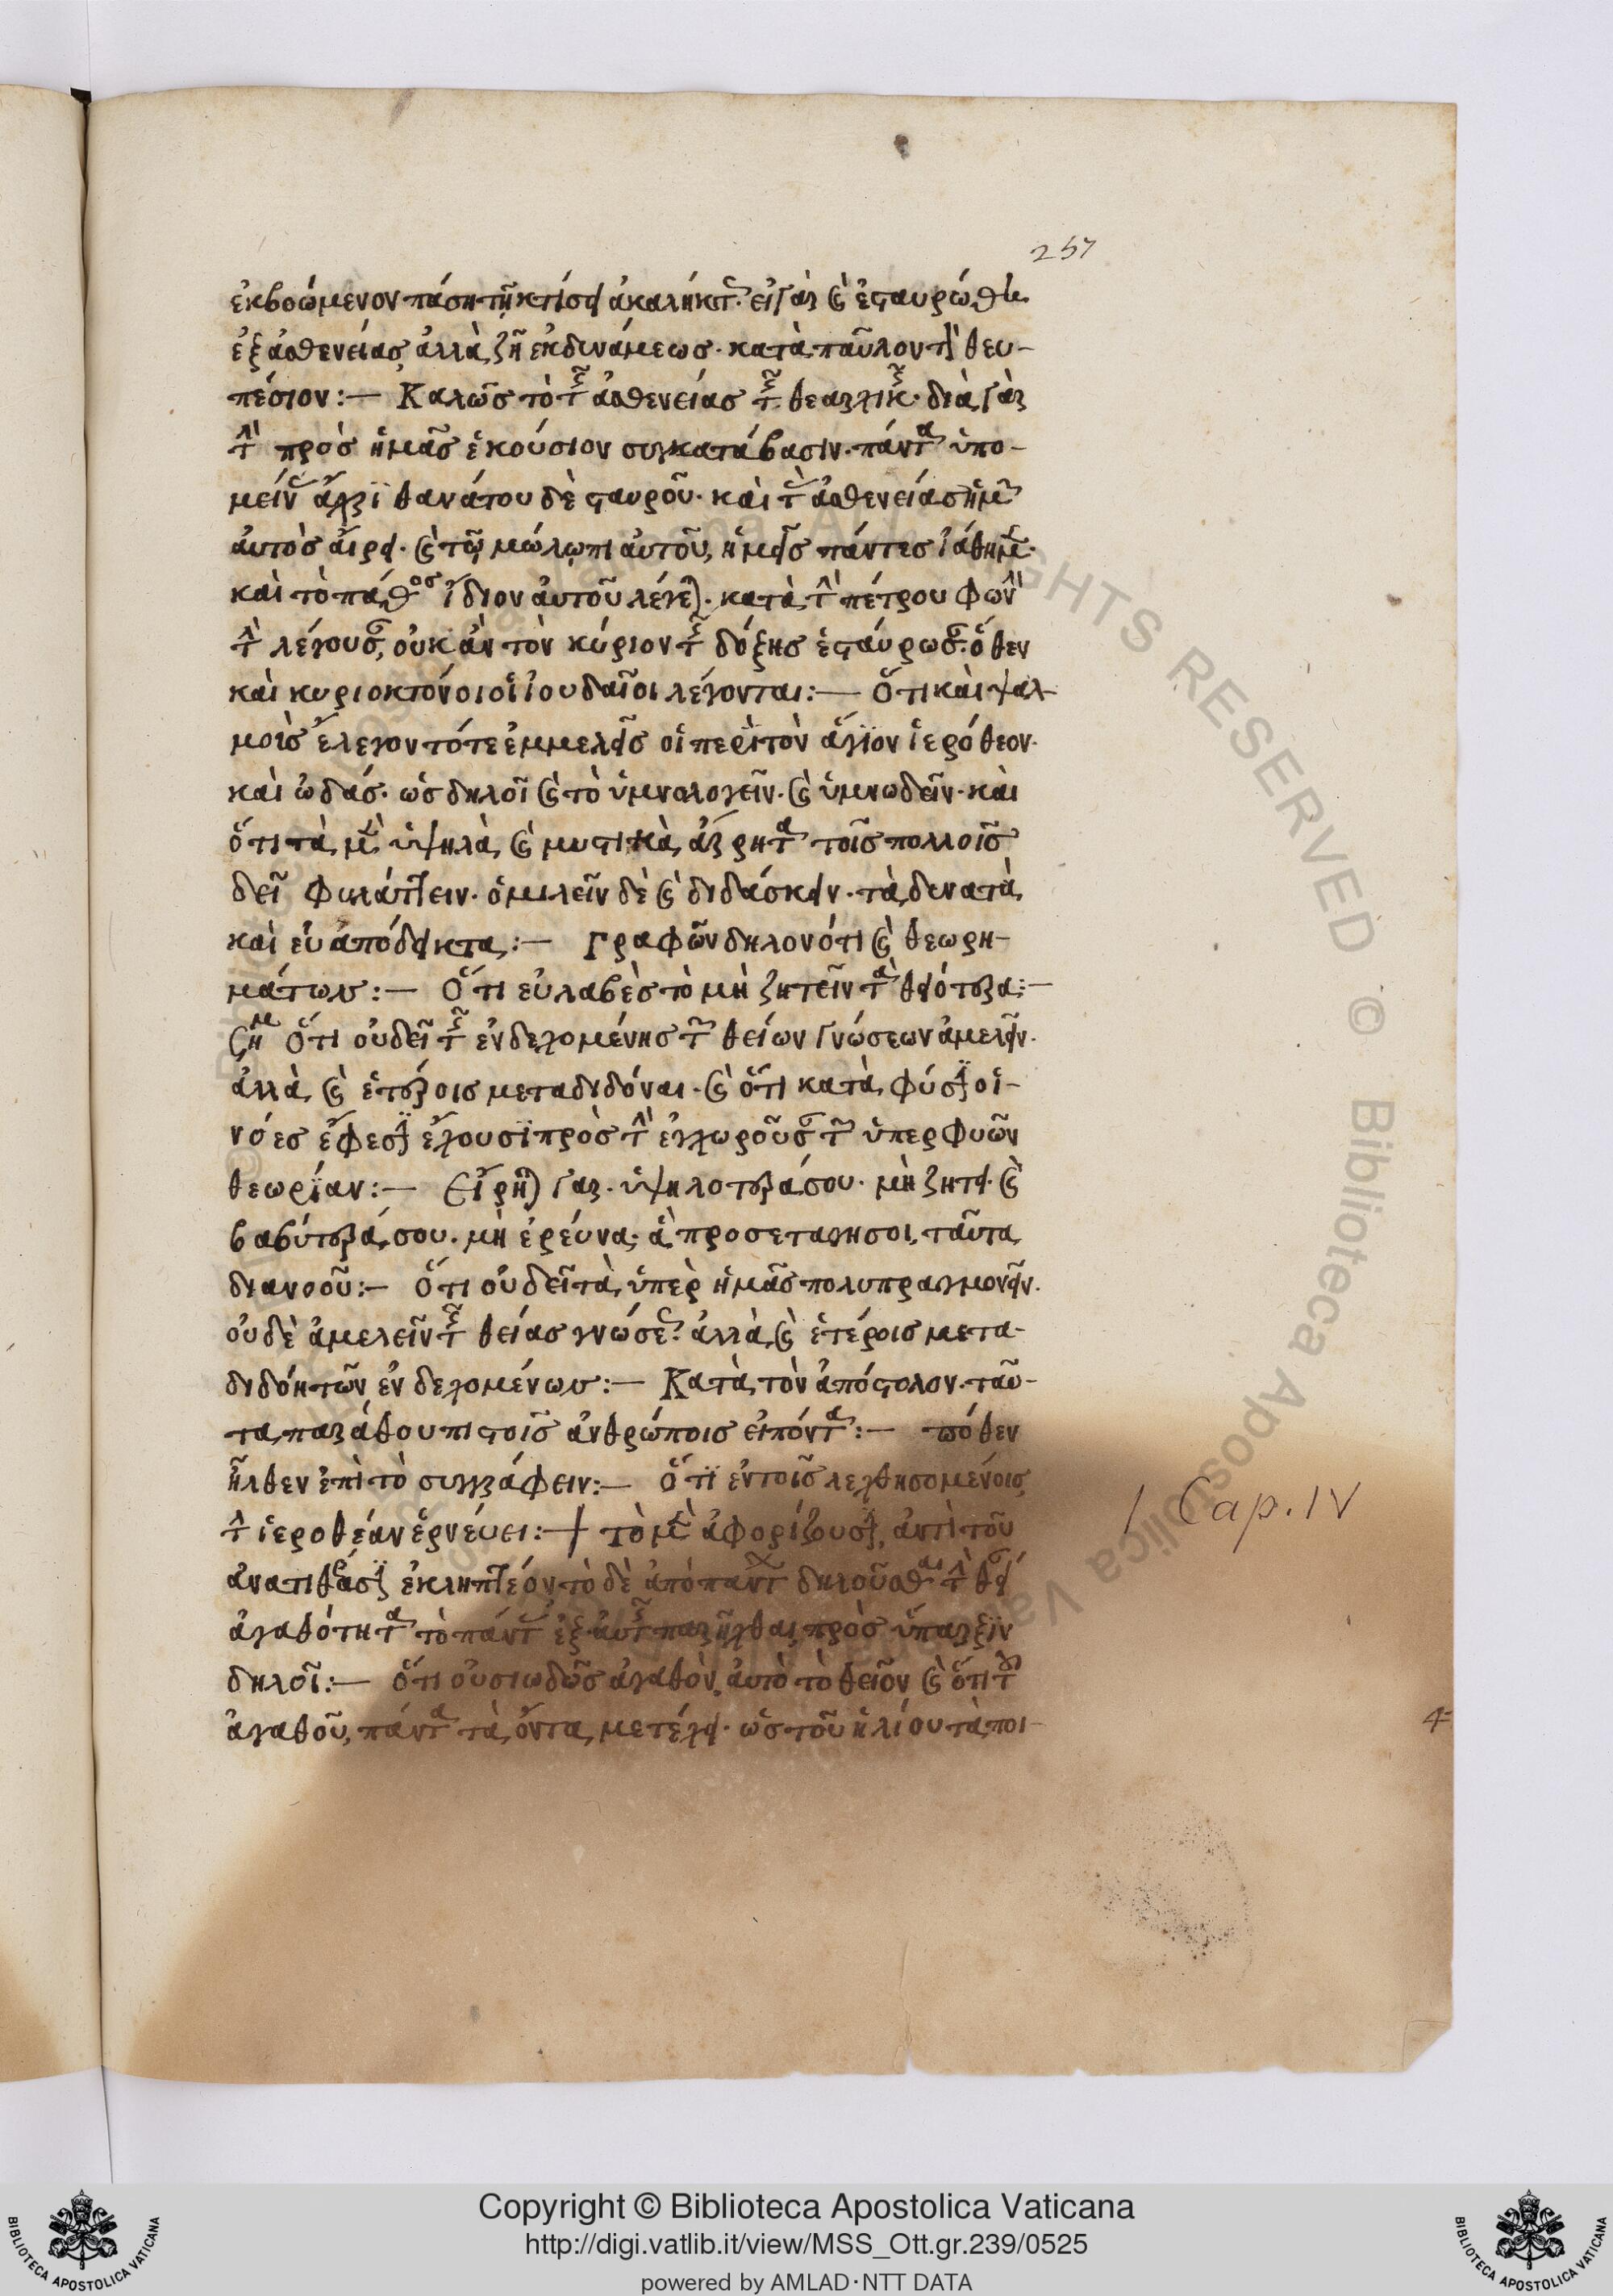 257
ἐκβοώμενον πάση τῆ κτίσει ἀκαλήκτως· εἰ γὰρ καὶ ἐσταυρώθη
ἐξ ἀσθενείας ἀλλὰ ζῆ ἐκ δυνάμεως· κατὰ παῦλον τὸν θεσ-
πέσιον:— Καλῶς τὸ τῆς ἀσθενείας τῆς θεαρχικῆς· διὰ γὰρ
τὴν πρὸς ἡμᾶς ἑκούσιον συγκατάβασιν· πάντα ὑπο-
μείνας ἄχρι θανάτου δὲ σταυροῦ· καὶ τὰς ἀσθενείας ἡμῶν
αὐτὸς αἴρει· καὶ τῶ μώλωπι αὐτοῦ, ἡμεῖς πάντες ἰάθημεν·
καὶ τὸ πάθος ἴδιον αὐτοῦ λέγεται· κατὰ τὴν πέτρου φωνὴν
τὴν λέγουσαν, οὐκ ἂν τὸν κύριον τῆς δόξης ἐσταύρωσαν· ὅθεν
καὶ κυριοκτόνοι οἱ ἰουδαῖοι λέγονται:— Ὅτι καὶ ψαλ-
μοὶς ἔλεγον τότε ἐμμελεῖς οἱ περὶ τὸν ἅγιον ἱερόθεον·
καὶ ὠδάς· ὡς δηλοῖ καὶ τὸ ὑμνολογεῖν· καὶ ὑμνωδεῖν· καὶ
ὅτι τὰ μὲν ὑψηλὰ καὶ μυστικὰ ἄρρητα τοῖς πολλοῖς
δεῖ φυλάττειν· ὁμιλεῖν δὲ καὶ διδάσκειν· τὰ δυνατὰ
καὶ εὐαπόδεικτα:— Γραφῶν δηλονότι καὶ θεωρη-
μάτων:— Ὅτι εὐλαβὲς τὸ μὴ ζητεῖν τὰ θειότερα:—
Σημ Ὅτι οὐ δεῖ τῆς ἐνδεχομένης τῶν θείων γνώσεων ἀμελεῖν·
ἀλλὰ καὶ ἑτέροις μεταδιδόναι· καὶ ὅτι κατὰ φύσιν οἱ
νόες ἔφεσιν ἔχουσι πρὸς τὴν ἐγχωροῦσαν τῶν ὑπερφυῶν
θεωρίαν:— Εἴρηται γὰρ· ὑψηλότερά σου· μὴ ζήτει· καὶ
βαθύτερά σου· μὴ ἐρεύνα· ἃ προσετάγησοι, ταῦτα
διανοοῦ:— Ὅτι οὐ δεῖ τὰ ὑπὲρ ἡμᾶς πολυπραγμονεῖν·
οὐδὲ ἀμελεῖν τῆς θείας γνώσεως· ἀλλὰ καὶ ἑτέροις μετα-
διδόναι τῶν ἐνδεχομένων:— Κατὰ τὸν ἀπόστολον· ταῦ-
τα παράθου πιστοῖς ἀνθρώποις εἰπόντα:— πόθεν
ἦλθεν ἐπὶ τὸ συγγράφειν:— Ὅτι ἐν τοῖς λεχθησομένοις
:— τὸ μὲν ἀφορίζουσιν, ἀντὶ τοῦ
ἀνατιθέασιν ἐκληπτέον τὸ δὲ ἀπὸ πάντων δηλοῦσθαι τὴν
ἀγαθότητα τὸ πάντα ἐξ αὐτῆς παρῆχθαι πρὸς ὕπαρξιν
δηλοῖ:— ὅτι οὐσιωδῶς ἀγαθὸν αὐτὸ τὸ θεῖον καὶ ὅτι τοῦ
ἀγαθοῦ, πάντα τὰ ὄντα μετέχει· ὡς τοῦ ἡλίου τὰ ποι-
/ Cap. IV
4
© Biblioteca Apostolica Vaticana
Copyright © Biblioteca Apostolica Vaticana
http://digi.vatlib.it/view/MSS_Ott.gr.239/0525
powered by AMLAD·NTT DATA
BIBLIOTECA APOSTOLICA VATICANA
BIBLIOTECA APOSTOLICA VATICANA